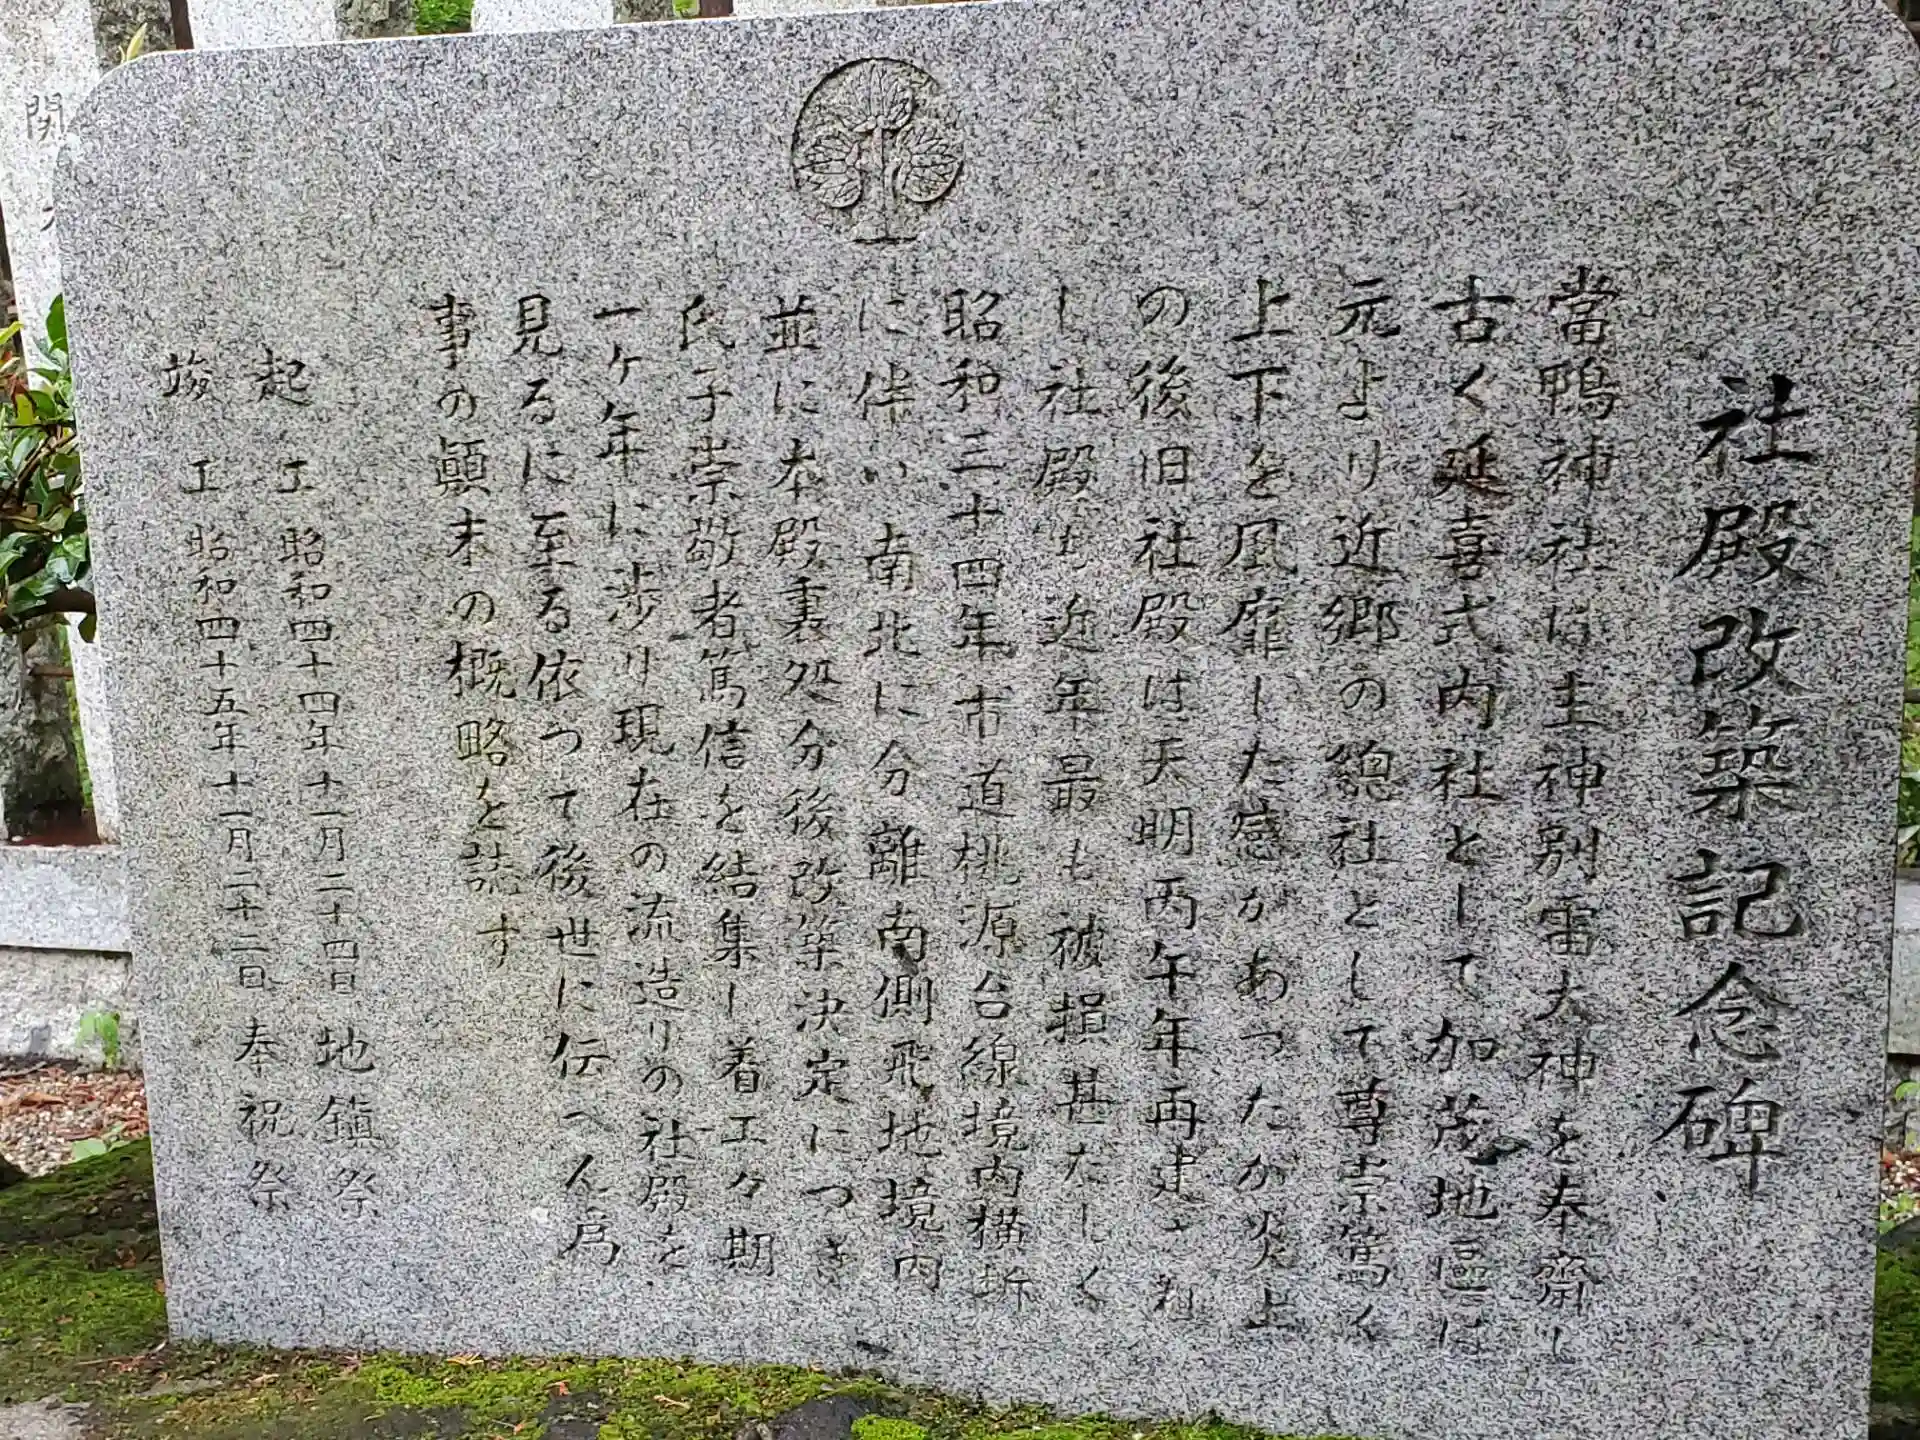 社殿改築記念碑
當鴨神社は主神別雷大神を奉齋し
古く延喜式内社として加茂地區は
元より近郷の總社として尊崇篤く
上下を風靡した感があったが炎上
の後旧社殿は天明丙午年再建され
し社殿も近年最も被損甚だしく
昭和三十四年市道桃源台線境内横断
に伴い南北に分離南側飛地境内
並に本殿裏処分後改築決定につき
氏子崇敬者篤信を結集し着工々期
一ヶ年に渉り現在の流造りの社殿を
見るに至る依つて後世に伝へん為
事の顛末の概略を誌す
起工 昭和四十四年十一月二十四日 地鎮祭
竣工 昭和四十五年十一月二十二日 奉祝祭
関